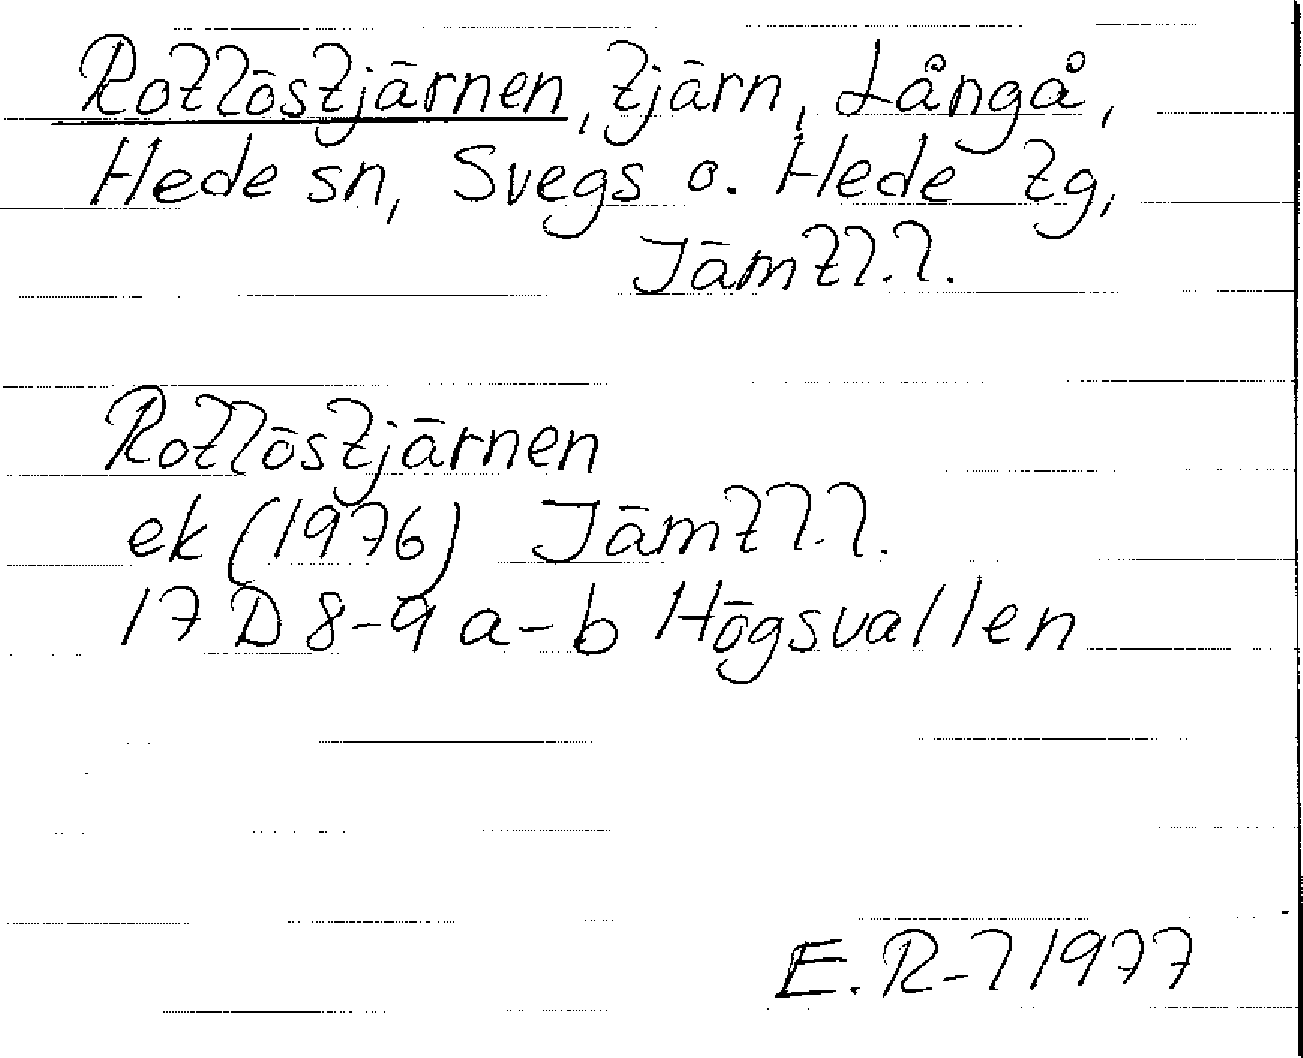 Rotlöstjärnen, tjärn, Långå,
Hede sn, Svegs o. Hede tg,
Jämtl.l.
Rotlöstjärnen
ek (1976) Jämtl.l.
17 D 8-9 a-b Högsvallen
E. R-l 1977